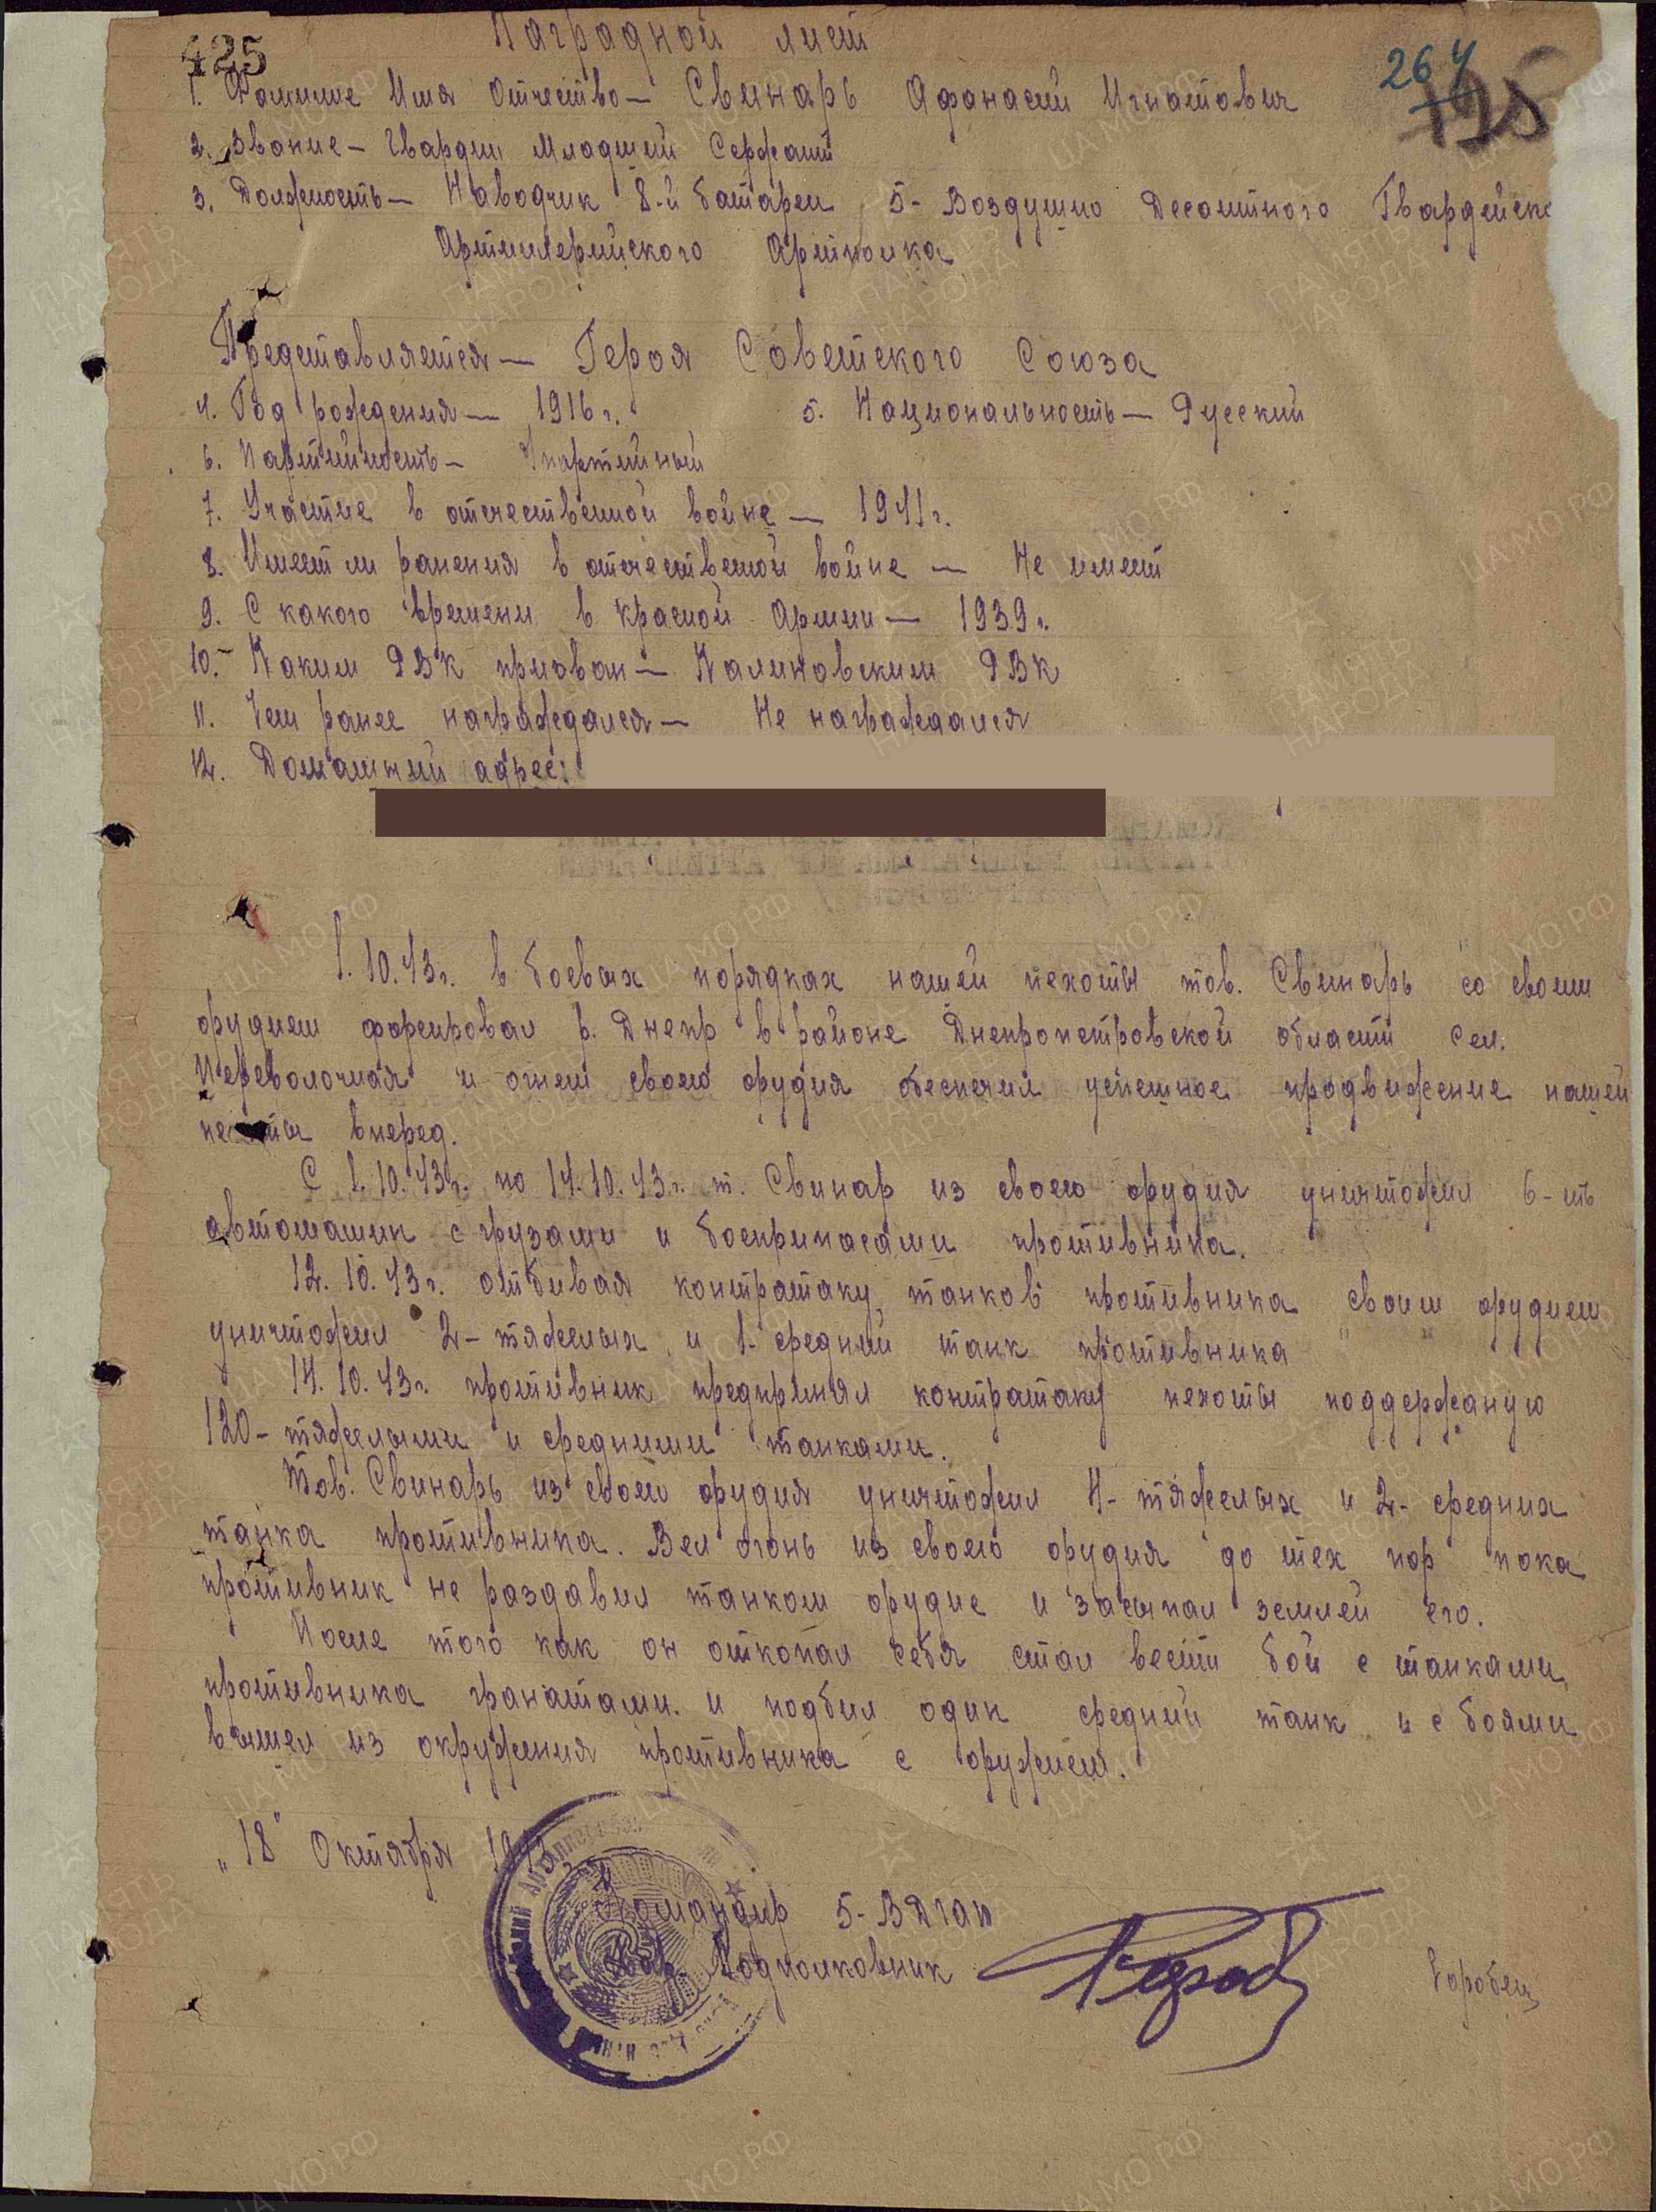 425
Наградной лист
264
195
1. Фамилие Имя Отчество — Свинарь Афанасий Игнатович
2. Звание — Гвардии Младший Сержант
3. Должность — Наводчик 8-й батареи 5-Воздушно Десантного Гвардейско
Артиллерийского Артполка
Представляется — Героя Советского Союза
4. Год рождения — 1916 г. 5. Национальность — Русский
6. Партийность —
7. Участие в отечественной войне — 1941 г.
8. Имеет ли ранения в отечественой войне — Не имеет
9. С какого времени в красной Армии — 1939 г.
10. Каким РВК призван — Калиновским РВК
11. Чем ранее награждался — Не награждался
12. Домашний адрес:
1.10.43г. в боевых порядках нашей пехоты тов. Свинарь со своим
орудием форсировал р. Днепр в районе Днепропетровской области сел.
Переволочная и огнем своего орудия обеспечил успешное продвижение нашей
пехоты вперед.
С 1.10.43г. по 14.10.43г. т. Свинар из своего орудия уничтожил 6-ть
автомашин с грузами и боеприпасами противника.
12.10.43г. отбивая контратаку танков противника своим орудием
уничтожил 2-тяжелых и 1-средний танк противника
14.10.43г. противник предпринял контратаку пехоты поддержаную
120-тяжелыми и средними танками.
Тов. Свинарь из своего орудия уничтожил 4-тяжелых и 2-средних
танка противника. Вел огонь из своего орудия до тех пор пока
противник не раздавил танком орудие и засыпал землей его.
После того как он откопал себя стал вести бой с танками
противника гранатами. и подбил один средний танк и с боями
вышел из окружения противника с оружием.
„18" Октября 1943г.
Командир 5-ВДГАП
Гв. Подполковник